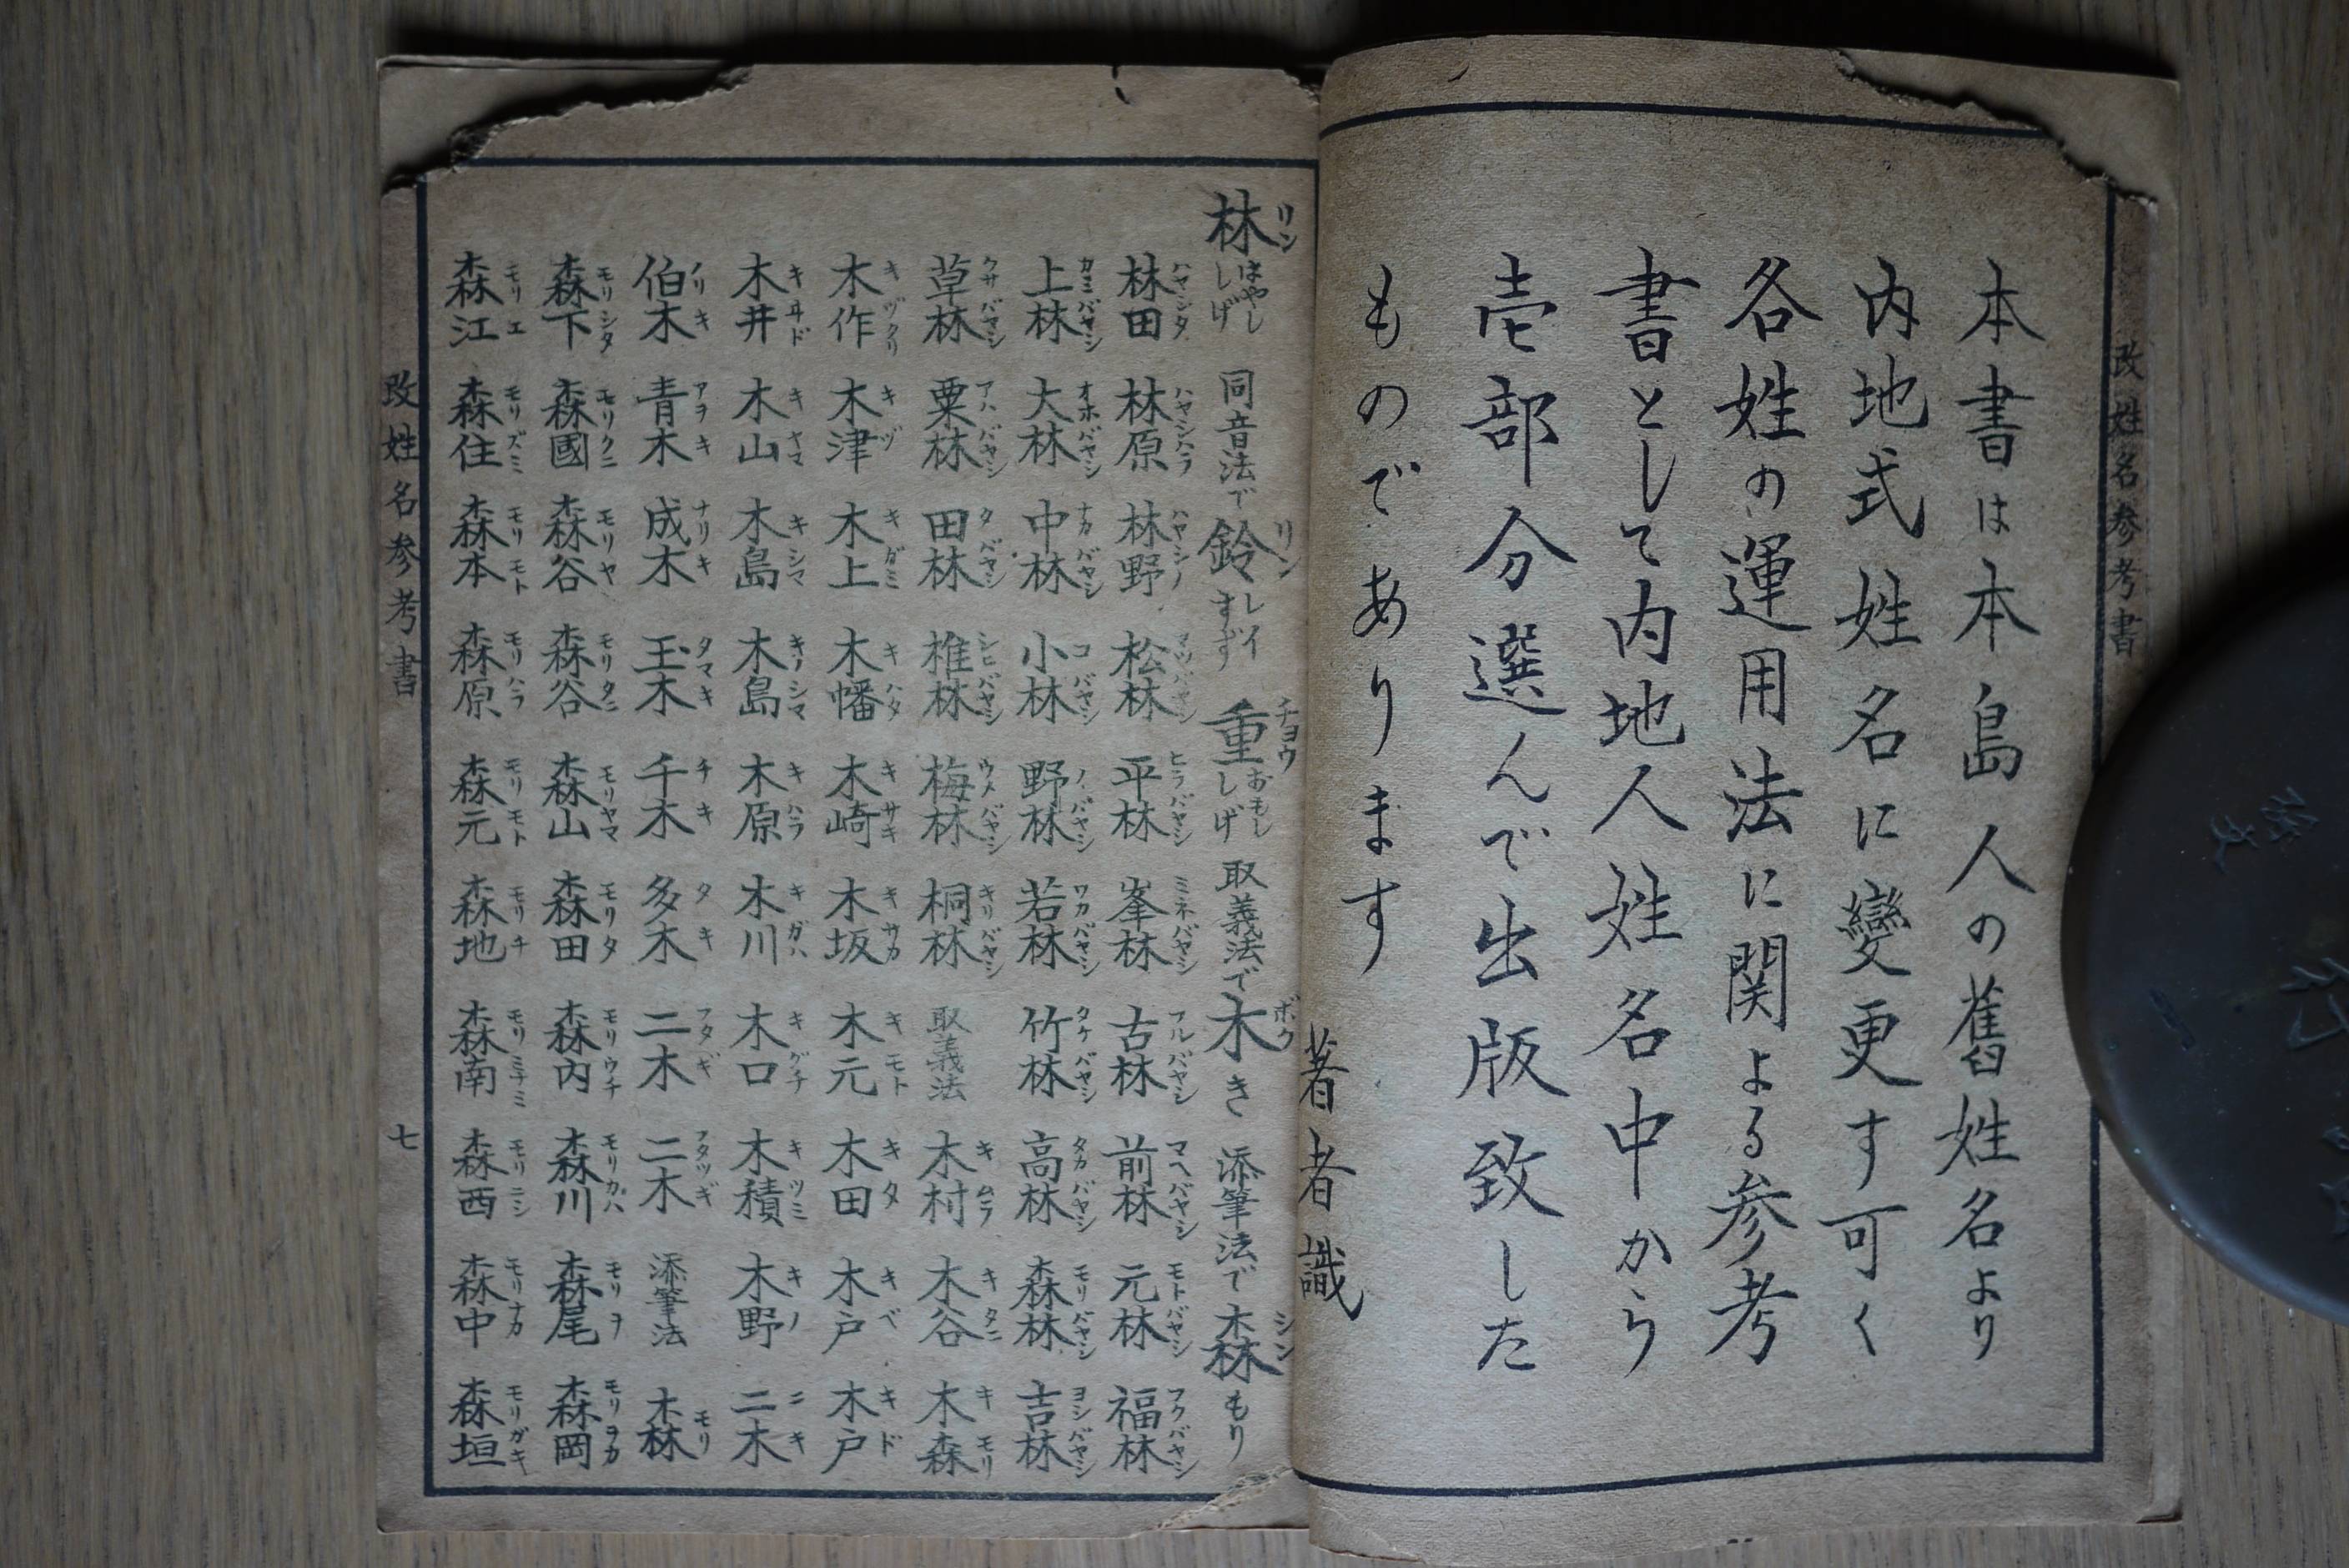 改姓名参考書
本書は本島人の舊姓名より
内地式姓名に變更す可く
各姓の運用法に関よる参考
書として内地人姓名中から
壱部分選んで出版致した
ものであります
著者識
林 リン はやし しげ 同音法で 鈴 リン レイ すず 重 チヨウ おもし しげ 取義法で 木 ボク き 添筆法で 森 シン もり
林田 ハヤシタ 林原 ハヤシハラ 林野 ハヤシノ 松林 マツバヤシ 平林 ヒラバヤシ 峯林 ミネバヤシ 古林 フルバヤシ 前林 マヘバヤシ 元林 モトバヤシ 福林 フクバヤシ
上林 カミバヤシ 大林 オホバヤシ 中林 ナカバヤシ 小林 コバヤシ 野林 ノバヤシ 若林 ワカバヤシ 竹林 タケバヤシ 高林 タカバヤシ 森林 モリバヤシ 吉林 ヨシバヤシ
草林 クサバヤシ 粟林 アハバヤシ 田林 タバヤシ 椎林 シヒバヤシ 梅林 ウメバヤシ 桐林 キリバヤシ 取義法 木村 キムラ 木谷 キタニ 木森 キモリ
木作 キヅクリ 木津 キヅ 木上 キガミ 木幡 キハタ 木崎 キサキ 木坂 キサカ 木元 キモト 木田 キタ 木戸 キベ 木戸 キド
木井 キヰド 木山 キヤマ 木島 キシマ 木島 キノシマ 木原 キハラ 木川 キガハ 木口 キグチ 木積 キツミ 木野 キノ 二木 ニキ
伯木 ノリキ 青木 アヲキ 成木 ナリキ 玉木 タマキ 千木 チキ 多木 タキ 二木 フタギ 二木 フタツギ 添筆法 森 モリ
森下 モリシタ 森國 モリクニ 森谷 モリヤ 森谷 モリタニ 森山 モリヤマ 森田 モリタ 森内 モリウチ 森川 モリカハ 森尾 モリヲ 森岡 モリヲカ
森江 モリエ 森住 モリズミ 森本 モリモト 森原 モリハラ 森元 モリモト 森地 モリチ 森南 モリミナミ 森西 モリニシ 森中 モリナカ 森垣 モリガキ
改姓名参考書 七